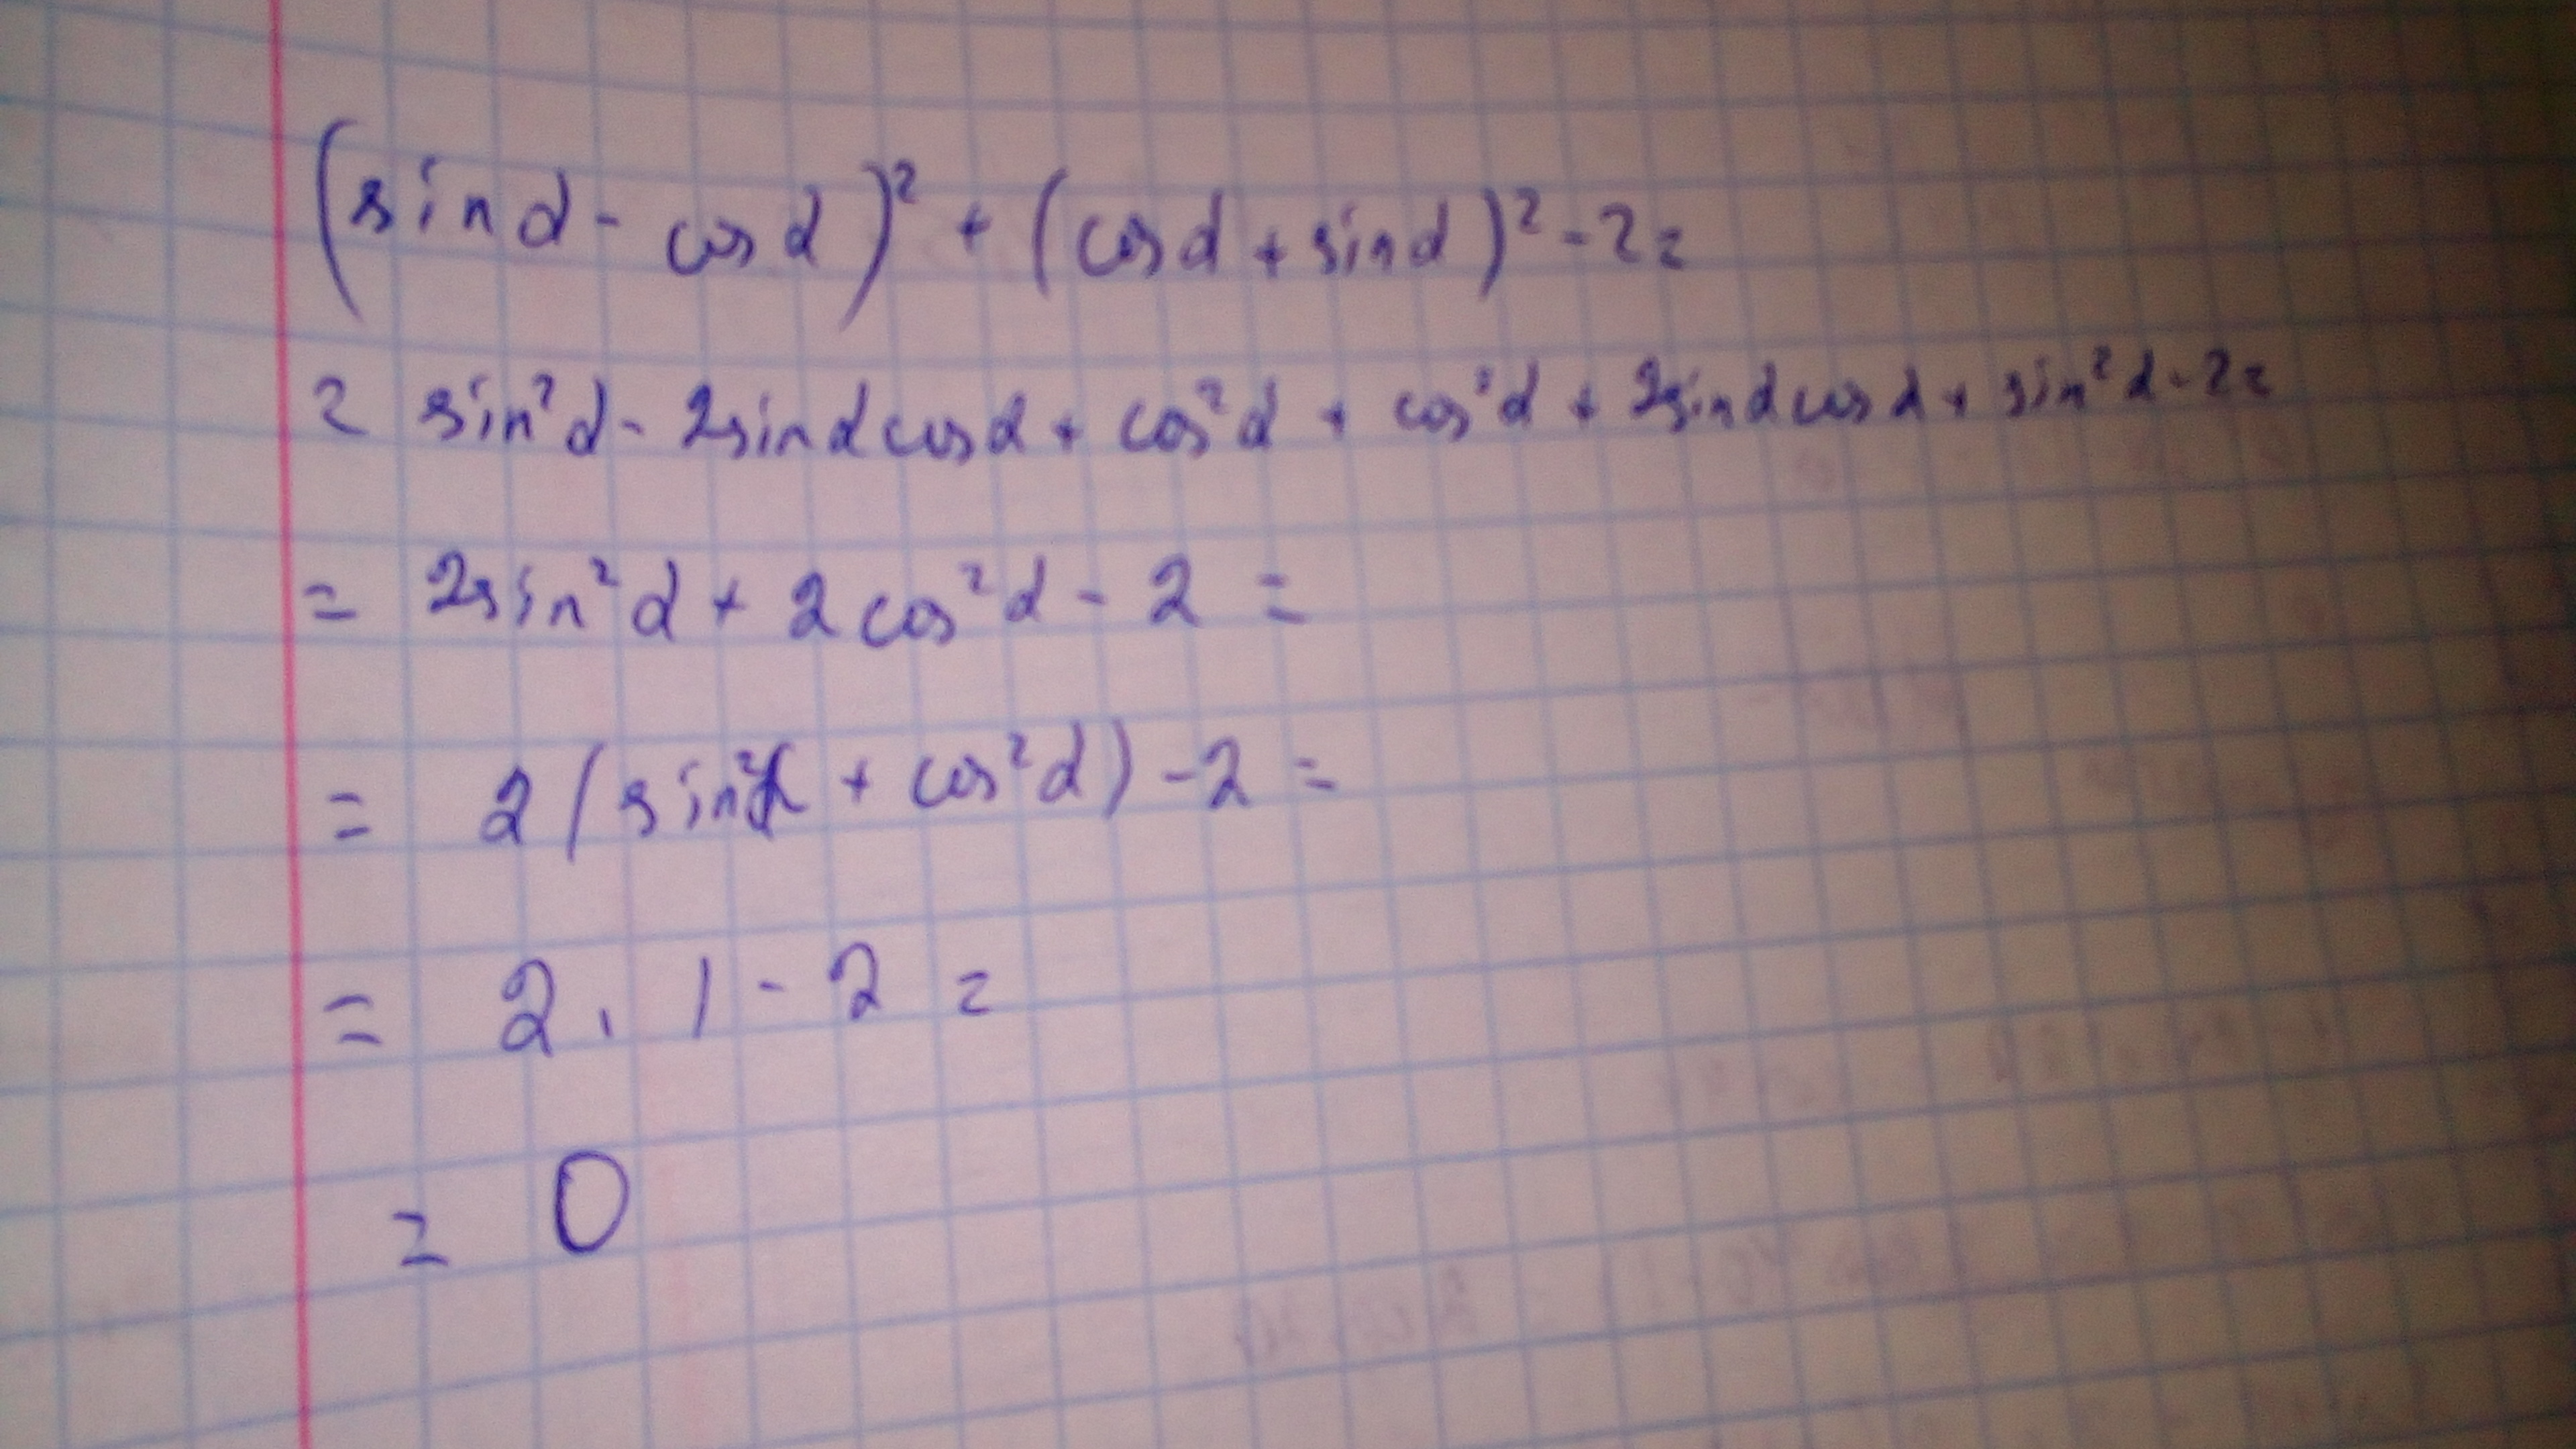 (sin α - cos α)² + (cos α + sin α)² - 2 =
= sin²α - 2sin α cos α + cos²α + cos²α + 2sin α cos α + sin²α - 2 =
= 2sin²α + 2cos²α - 2 =
= 2(sin²α + cos²α) - 2 =
= 2 · 1 - 2 =
= 0